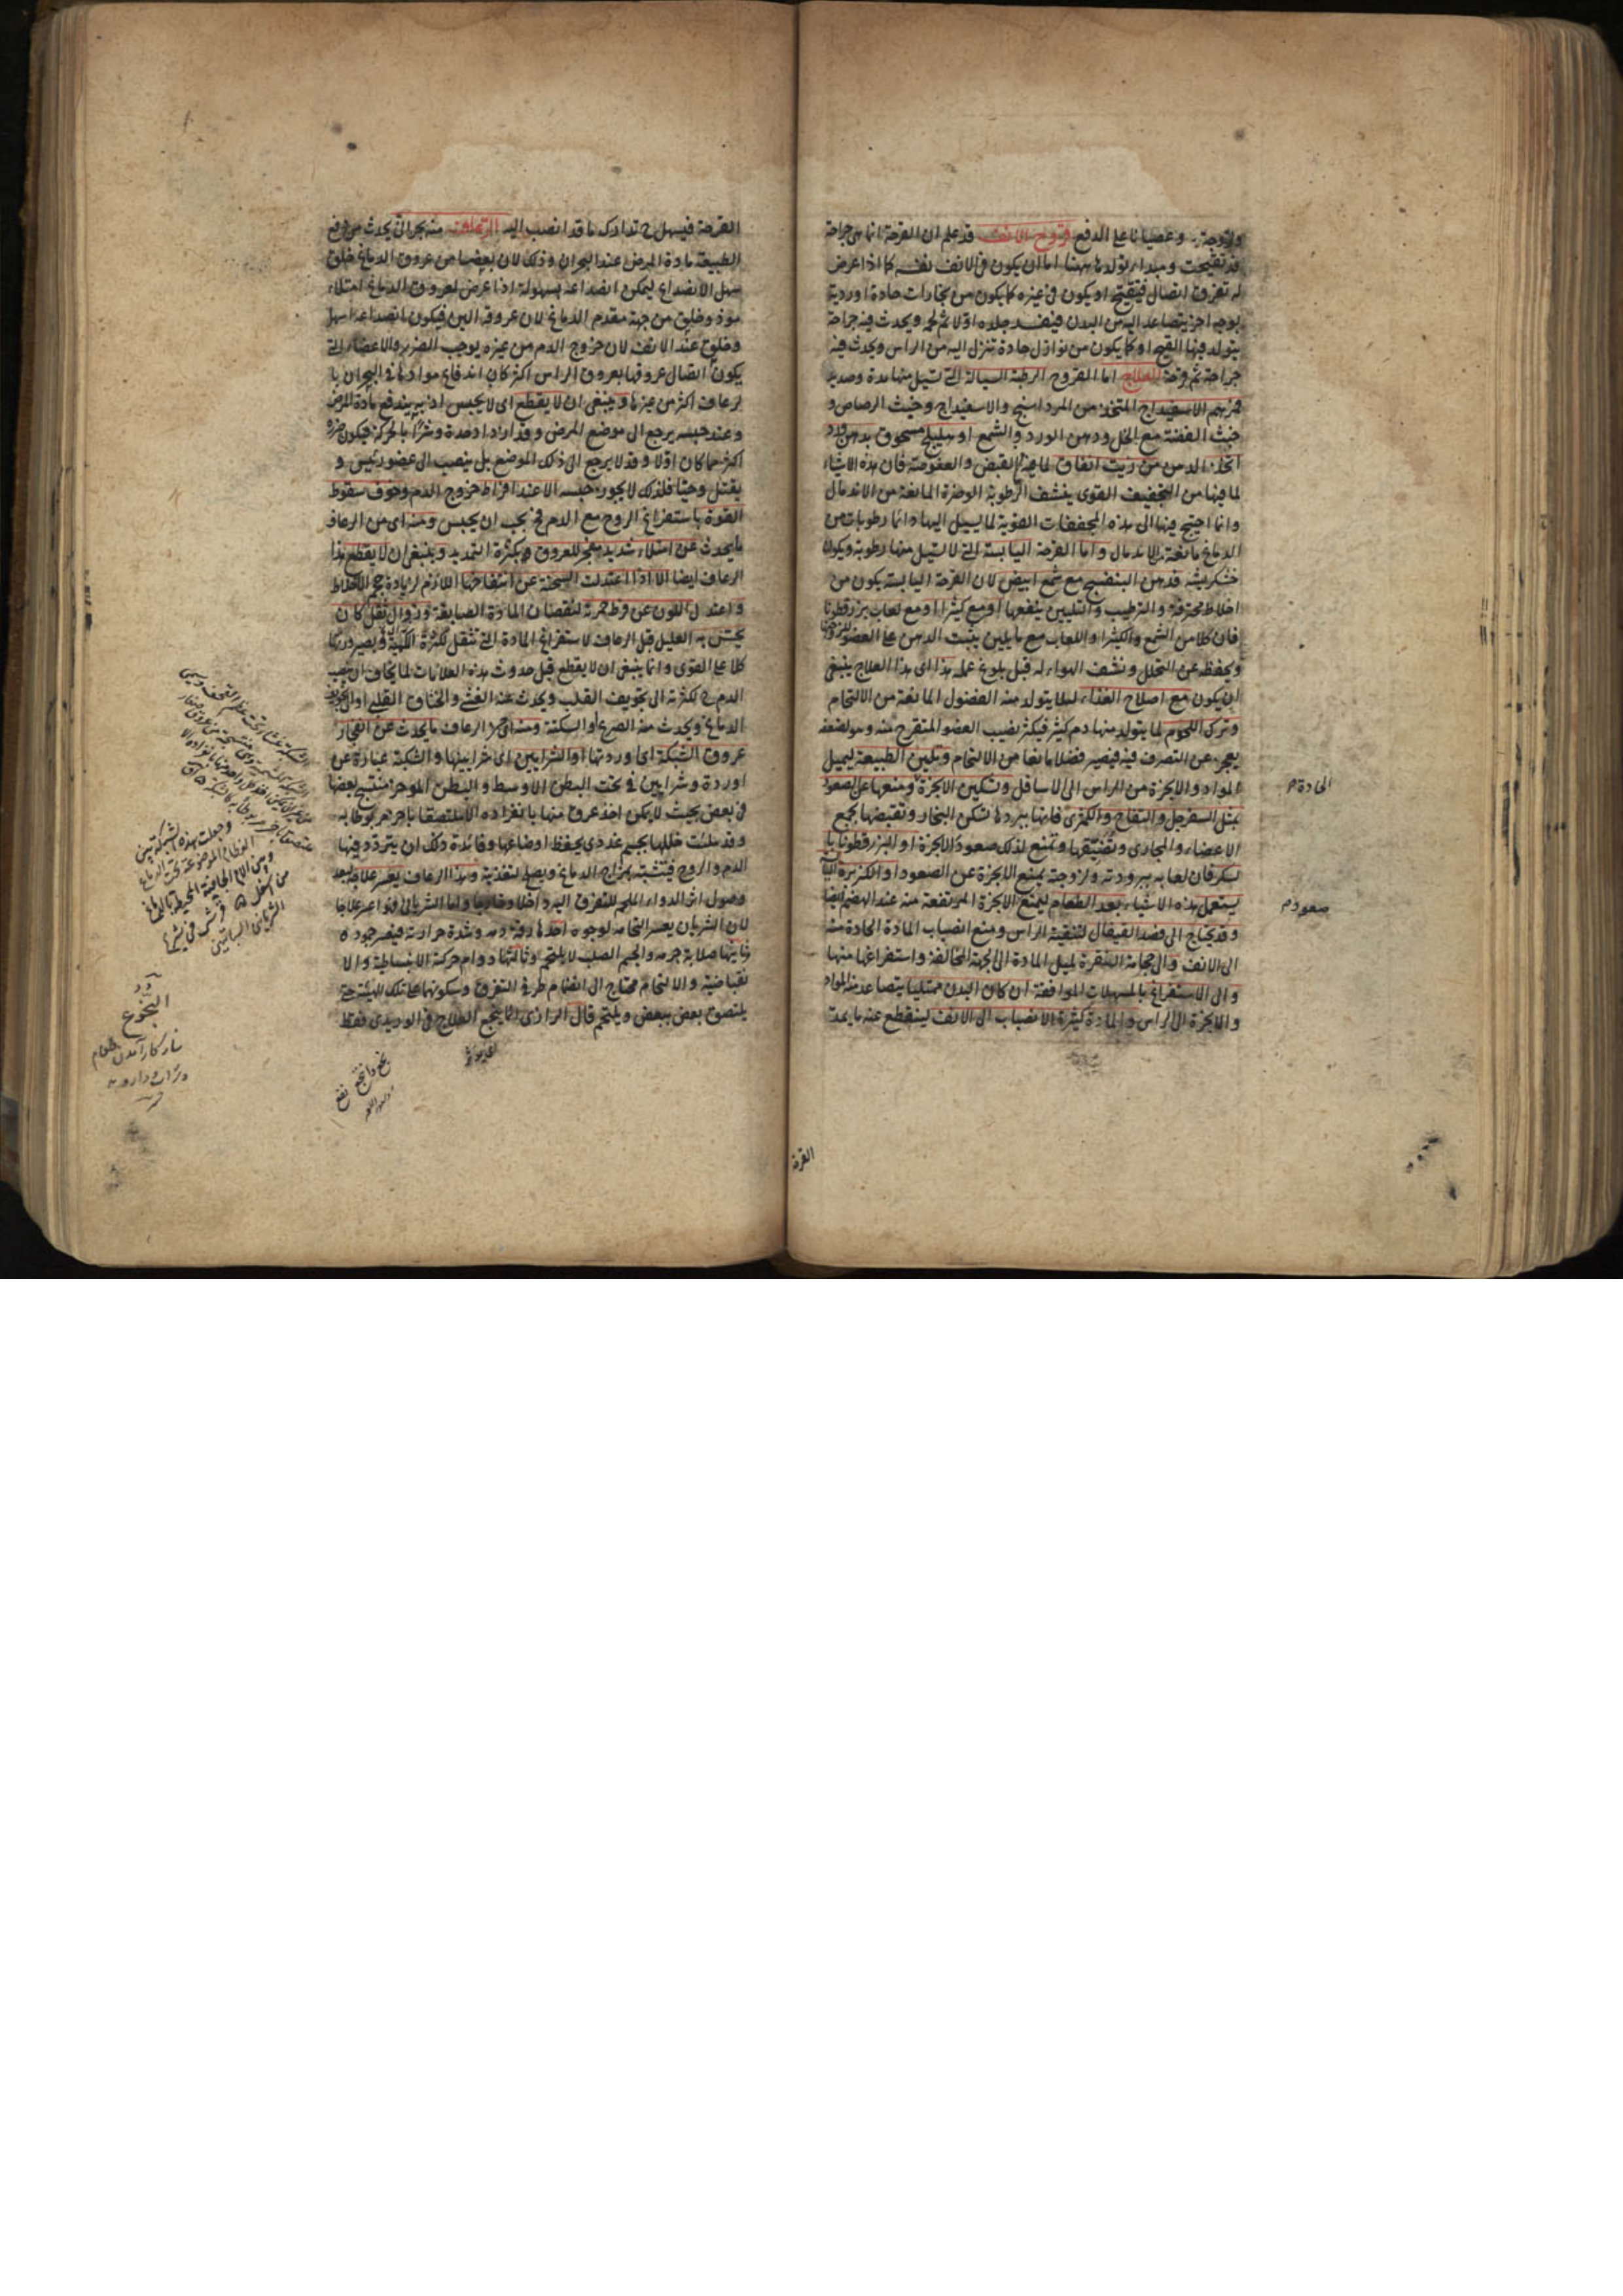 ولزوجته وعصيانا على الدفع قروح الانف قد علم ان القرحة انما هى جراحة
قد تقيحت ومبدأ تولدها ههنا اما ان يكون فى الانف نفسه كما اذا عرض
له تفرق اتصال فيتقيح او يكون فى غيره كما يكون من بخارات حادة او ردية
بوجه اخر يتصاعد اليه من البدن فيفسد جلده اولا ثم لحمه ويحدث فيه جراحة
يتولد فيها القيح او كما يكون من نوازل حادة تنزل اليه من الراس ويحدث فيه
جراحة ثم قرحة العلاج اما القروح الرطبة السيالة التى تسيل منها مدة وصديد
فمرهم الاسفيداج المتخذ من المرداسنج والاسفيداج وخبث الرصاص و
خبث الفضة مع الخل ودهن الورد والشمع او هليلج مسحوق بدهن ورد
اتخذ الدهن من زيت انفاق لما فيه القبض والعفوصة فان هذه الاشياء
لما فيها من التجفيف القوى ينشف الرطوبة الوضرة المانعة من الاندمال
وانما احتيج فيها الى هذه المجففات القوية لما يسيل اليها دائما رطوبات من
الدماغ مانعة للاندمال واما القرحة اليابسة التى لا تسيل منها رطوبة ويكون
خشكريشة فدهن البنفسج مع شمع ابيض لان القرحة اليابسة يكون من
اخلاط محترقة والترطيب والتليين ينفعها او مع كثيرا او مع لعاب بزرقطونا
فان كلا من الشمع والكثيرا واللعاب مع ما يلين يثبت الدهن على العضو
ويحفظه عن التحلل ونشف الهواء له قبل بلوغ عمله هذا اى هذا العلاج ينبغى
ان يكون مع اصلاح الغذاء لئلا يتولد منه الفضول المانعة من الالتحام
وترك اللحوم لما يتولد منها دم كثير فيكثر نصيب العضو المتقرح منه وهو لضعفه
يعجز عن التصرف فيه فيصير فضلا مانعا من الالتحام وتليين الطبيعة ليميل
المواد والابخرة من الراس الى الاسافل وتسكين الابخرة ومنعها عن الصعود
بمثل السفرجل والتفاح والكمثرى فانها ببردها تسكن البخار وتقبضها بجمع
الاعضاء والمجارى وتضيقها وتمنع لذلك صعود الابخرة او البزرقطونا با
لسكر فان لعابه ببرودته ولزوجته يمنع الابخرة عن الصعود او الكزبرة
يستعمل هذه الاشياء بعد الطعام ليمنع الابخرة المرتفعة منه عند الهضم ايضا
وقد يحتاج الى فصد القيفال لتنقية الراس ومنع انصباب المادة الحادة منه
الى الانف والى حجامة النقرة لميل المادة الى الجهة المخالفة واستفراغها منها
والى الاستفراغ بالمسهلات الموافقة ان كان البدن ممتليا يتصاعد منه المواد
والابخرة الى الراس والمادة كثيرة الانصباب الى الانف لينقطع عنه ما يمد
الحادة م
صعود م
القرحة
القرحة فيسهل ح تدارك ما قد انصب اليه الرعاف منه بحرانى يحدث من دفع
الطبيعة مادة المرض عند البحران وذلك لان بعضا من عروق الدماغ خلق
سهل الانصداع ليمكن انصداعه بسهولة اذا عرض لعروق الدماغ امتلاء
موذ وخلق من جهة مقدم الدماغ لان عروقه الين فيكون انصداعه اسهل
وخلق عند الانف لان خروج الدم من غيره يوجب الضرر والاعضاء التى
يكون اتصال عروقها بعروق الراس اكثر كان اندفاع موادها فى البحران با
لرعاف اكثر من غيرها وينبغى ان لا يقطع اى لا يحبس اذ به يندفع مادة المرض
وعند حبسه يرجع الى موضع المرض وقد ازداد حدة وشرا بالحركة فيكون ضرره
اكثر مما كان اولا وقد لا يرجع الى ذلك الموضع بل ينصب الى عضو رئيس و
يقتل وحيا فلذلك لا يجوز حبسه الا عند افراط خروج الدم وخوف سقوط
القوة باستفراغ الروح مع الدم فح يجب ان يحبس ومنه اى من الرعاف
ما يحدث عن امتلاء شديد مفجر للعروق بكثرة التمديد وينبغى ان لا يقطع هذا
الرعاف ايضا الا اذا اعتدلت السحنة عن انتفاخها اللازم لزيادة حجم الاخلاط
واعتدل اللون عن فرط حمرته لنقصان المادة الصابغة وزوال ثقل كان
يحس به العليل قبل الرعاف لاستفراغ المادة التى تثقل لكثرة الكمية ويصير
كلا على القوى وانما ينبغى ان لا يقطع قبل حدوث هذه العلامات لما يخاف ان ينصب
الدم ح لكثرته الى تجويف القلب ويحدث عنه الغشى والخناق القلبى او الى تجويف
الدماغ ويحدث منه الصرع او السكتة ومنه اى من الرعاف ما يحدث عن انفجار
عروق الشبكة اى اوردتها او الشرايين اى شرايينها والشبكة عبارة عن
اوردة وشرايين فى تحت البطن الاوسط والبطن الموخر منتسج بعضها
فى بعض بحيث لا يمكن اخذ عرق منها بانفراده الا ملتصقا باخر مربوطا به
وقد ملئت خللها بجسم غددى يحفظ اوضاعها وفائدة ذلك ان يتردد فيها
الدم والروح فيتشبه بمزاج الدماغ ويصلح لتغذيته وهذا الرعاف يعسر علاجه لبعد
وصول اثر الدواء الملحم للتفرق اليه داخلا وخارجا واما الشريانى فهو اعسر علاجا
لان الشريان يعسر التحامه لوجوه احدها رقة دمه وشدة حرارته فيعسر جموده
ثانيها صلابة جرمه والجسم الصلب لا يلتحم وثالثها دوام حركته الانبساطية والا
نقباضية والالتحام محتاج الى انضمام طرفى التفرق وسكونهما على تلك الهيئة حتى
يلتصق بعض ببعض ويلتحم قال الرازى انما ينجع العلاج فى الوريدى فقط
وجعلت هذه الشبكة بين
العظام الموضوعة تحت الدماغ
وبين الام الجافية المحيطة بالدماغ
من اسفل
النجوع